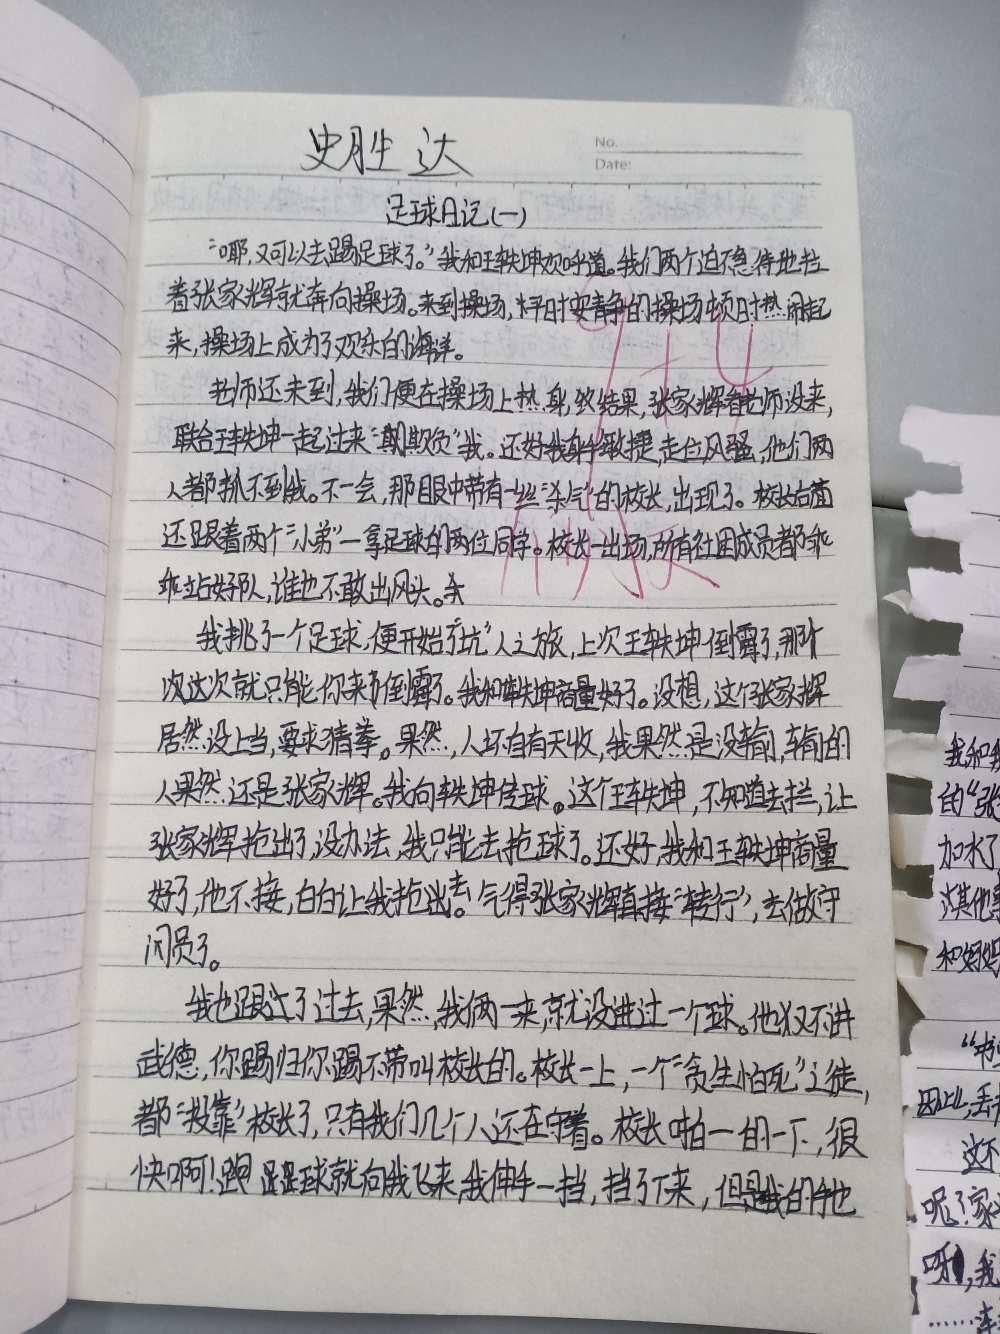 史胜达
No.
Date:
足球日记(一)
“耶,又可以去踢足球了。”我和王轶坤欢呼道。我们两个迫不急待地拉
着张家辉就奔向操场。来到操场,平时安静的操场顿时热闹起
来,操场上成为了欢乐的海洋。
9+4
老师还未到,我们便在操场上热身,结果,张家辉看老师没来,
联合王轶坤一起过来“期欺负”我。还好我身手敏捷,走位风骚,他们两
人都抓不到我。不一会,那眼中带有一丝“杀气”的校长,出现了。校长后面
还跟着两个“小弟”一拿足球的两位同学。校长一出场,所有社团成员都乖
乖站好队,谁也不敢出风头。
我挑了一个足球,便开始了“坑”人之旅,上次王轶坤倒霉了,那
次这次就只能你来倒霉了。我和轶坤商量好了。没想,这个张家辉
居然没上当,要求猜拳。果然,人坏自有天收,我果然是没输,输的
人果然还是张家辉。我向轶坤传球。这个王轶坤,不知道去拦,让
张家辉抢出了,没办法,我只能去抢球了。还好,我和王轶坤商量
好了,他不接,白白让我抢出去。气得张家辉直接“转行”,去做守
门员了。
我也跟了过去,果然,我俩一来,就没进过一个球。他又不讲
武德,你踢归你踢不带叫校长的。校长一上,一个“贪生怕死”之徒,
都“投靠”校长了,只有我们几个人还在守着。校长啪一的一下,很
快啊!足球就向我飞来,我伸手一挡,挡了下来,但是我的手也
我和我
的“张
加水了
和妈妈
因此,丢
这不
呢?家
呀,我